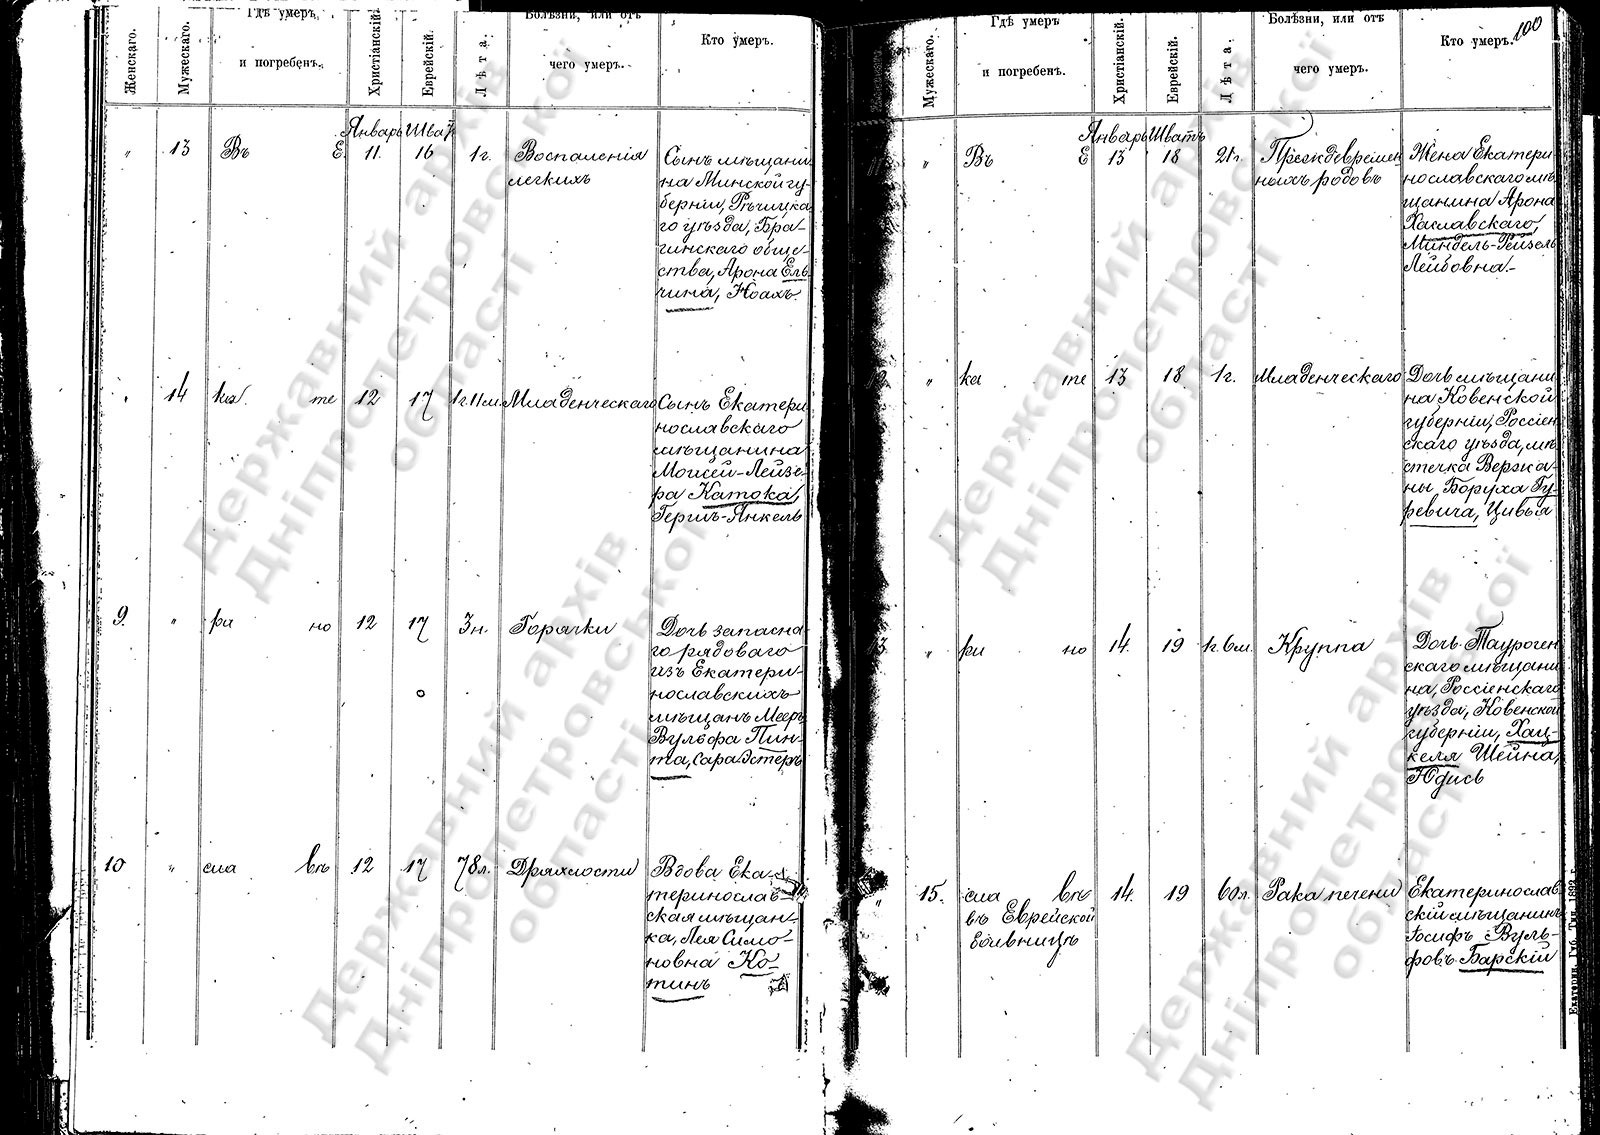 Женскаго.
Мужескаго.
Гдѣ умеръ
и погребенъ.
Христіанскій.
Еврейскій.
Лѣта.
Болѣзни, или отъ
чего умеръ.
Кто умеръ.
Январь Шватъ
" 13 Въ Е. 11. 16 1 г. Воспаленія
легкихъ
Сынъ мѣщани
на Минской гу-
берніи, Рѣчицка
го уѣзда, Бра-
гинскаго обще-
ства, Арона Ель
чина, Ноахъ.
" 14 ка те 12 17 1 г. 11 м. Младенческаго
Сынъ Екатери
нославскаго
мѣщанина
Моисей-Лейзе-
ра Катока,
Гершъ-Янкель
9. " ри но 12 17 3 н. Горячки
Дочь запасна
го рядоваго
изъ Екатери-
нославскихъ
мѣщанъ Мееръ
Вульфа Пин-
та, Сара Эстеръ
10 " сла въ 12 17 78 л. Дряхлости
Вдова Ека-
теринослав-
ская мѣщан-
ка, Лея Симо-
новна Ко-
тинъ
100
Мужескаго.
Гдѣ умеръ
и погребенъ.
Христіанскій.
Еврейскій.
Лѣта.
Болѣзни, или отъ
чего умеръ.
Кто умеръ.
Январь Шватъ
11 " Въ Е 13 18 21 г. Преждевремен
ныхъ родовъ
Жена Екатери
нославскаго мѣ
щанина Арона
Хаславскаго,
Миндель-Рейзель
Лейбовна.-
12 " ка те 13 18 1 г. Младенческаго
Дочь мѣщани
на Ковенской
губерніи, Россіен
скаго уѣзда, мѣ
стечка Вержа-
ны Боруха Гу-
ревича, Цивья
13 " ри но 14. 19 1 г. 6 м. Круппа
Дочь Таурoген
скаго мѣщани
на, Россіенскаго
уѣзда, Ковенской
губерніи, Хац-
келя Шейна,
Юдись
" 15. сла въ 14. 19 60 л. Рака печени
въ Еврейской
больницѣ
Екатеринослав
скій мѣщанинъ
Іосифъ Вуль-
фовъ Барскій
Екатерин. Губ. Тип. 1892 г.
Державний архів
Дніпропетровської
області
Державний архів
Дніпропетровської
області
Державний архів
Дніпропетровської
області
Державний архів
Дніпропетровської
області